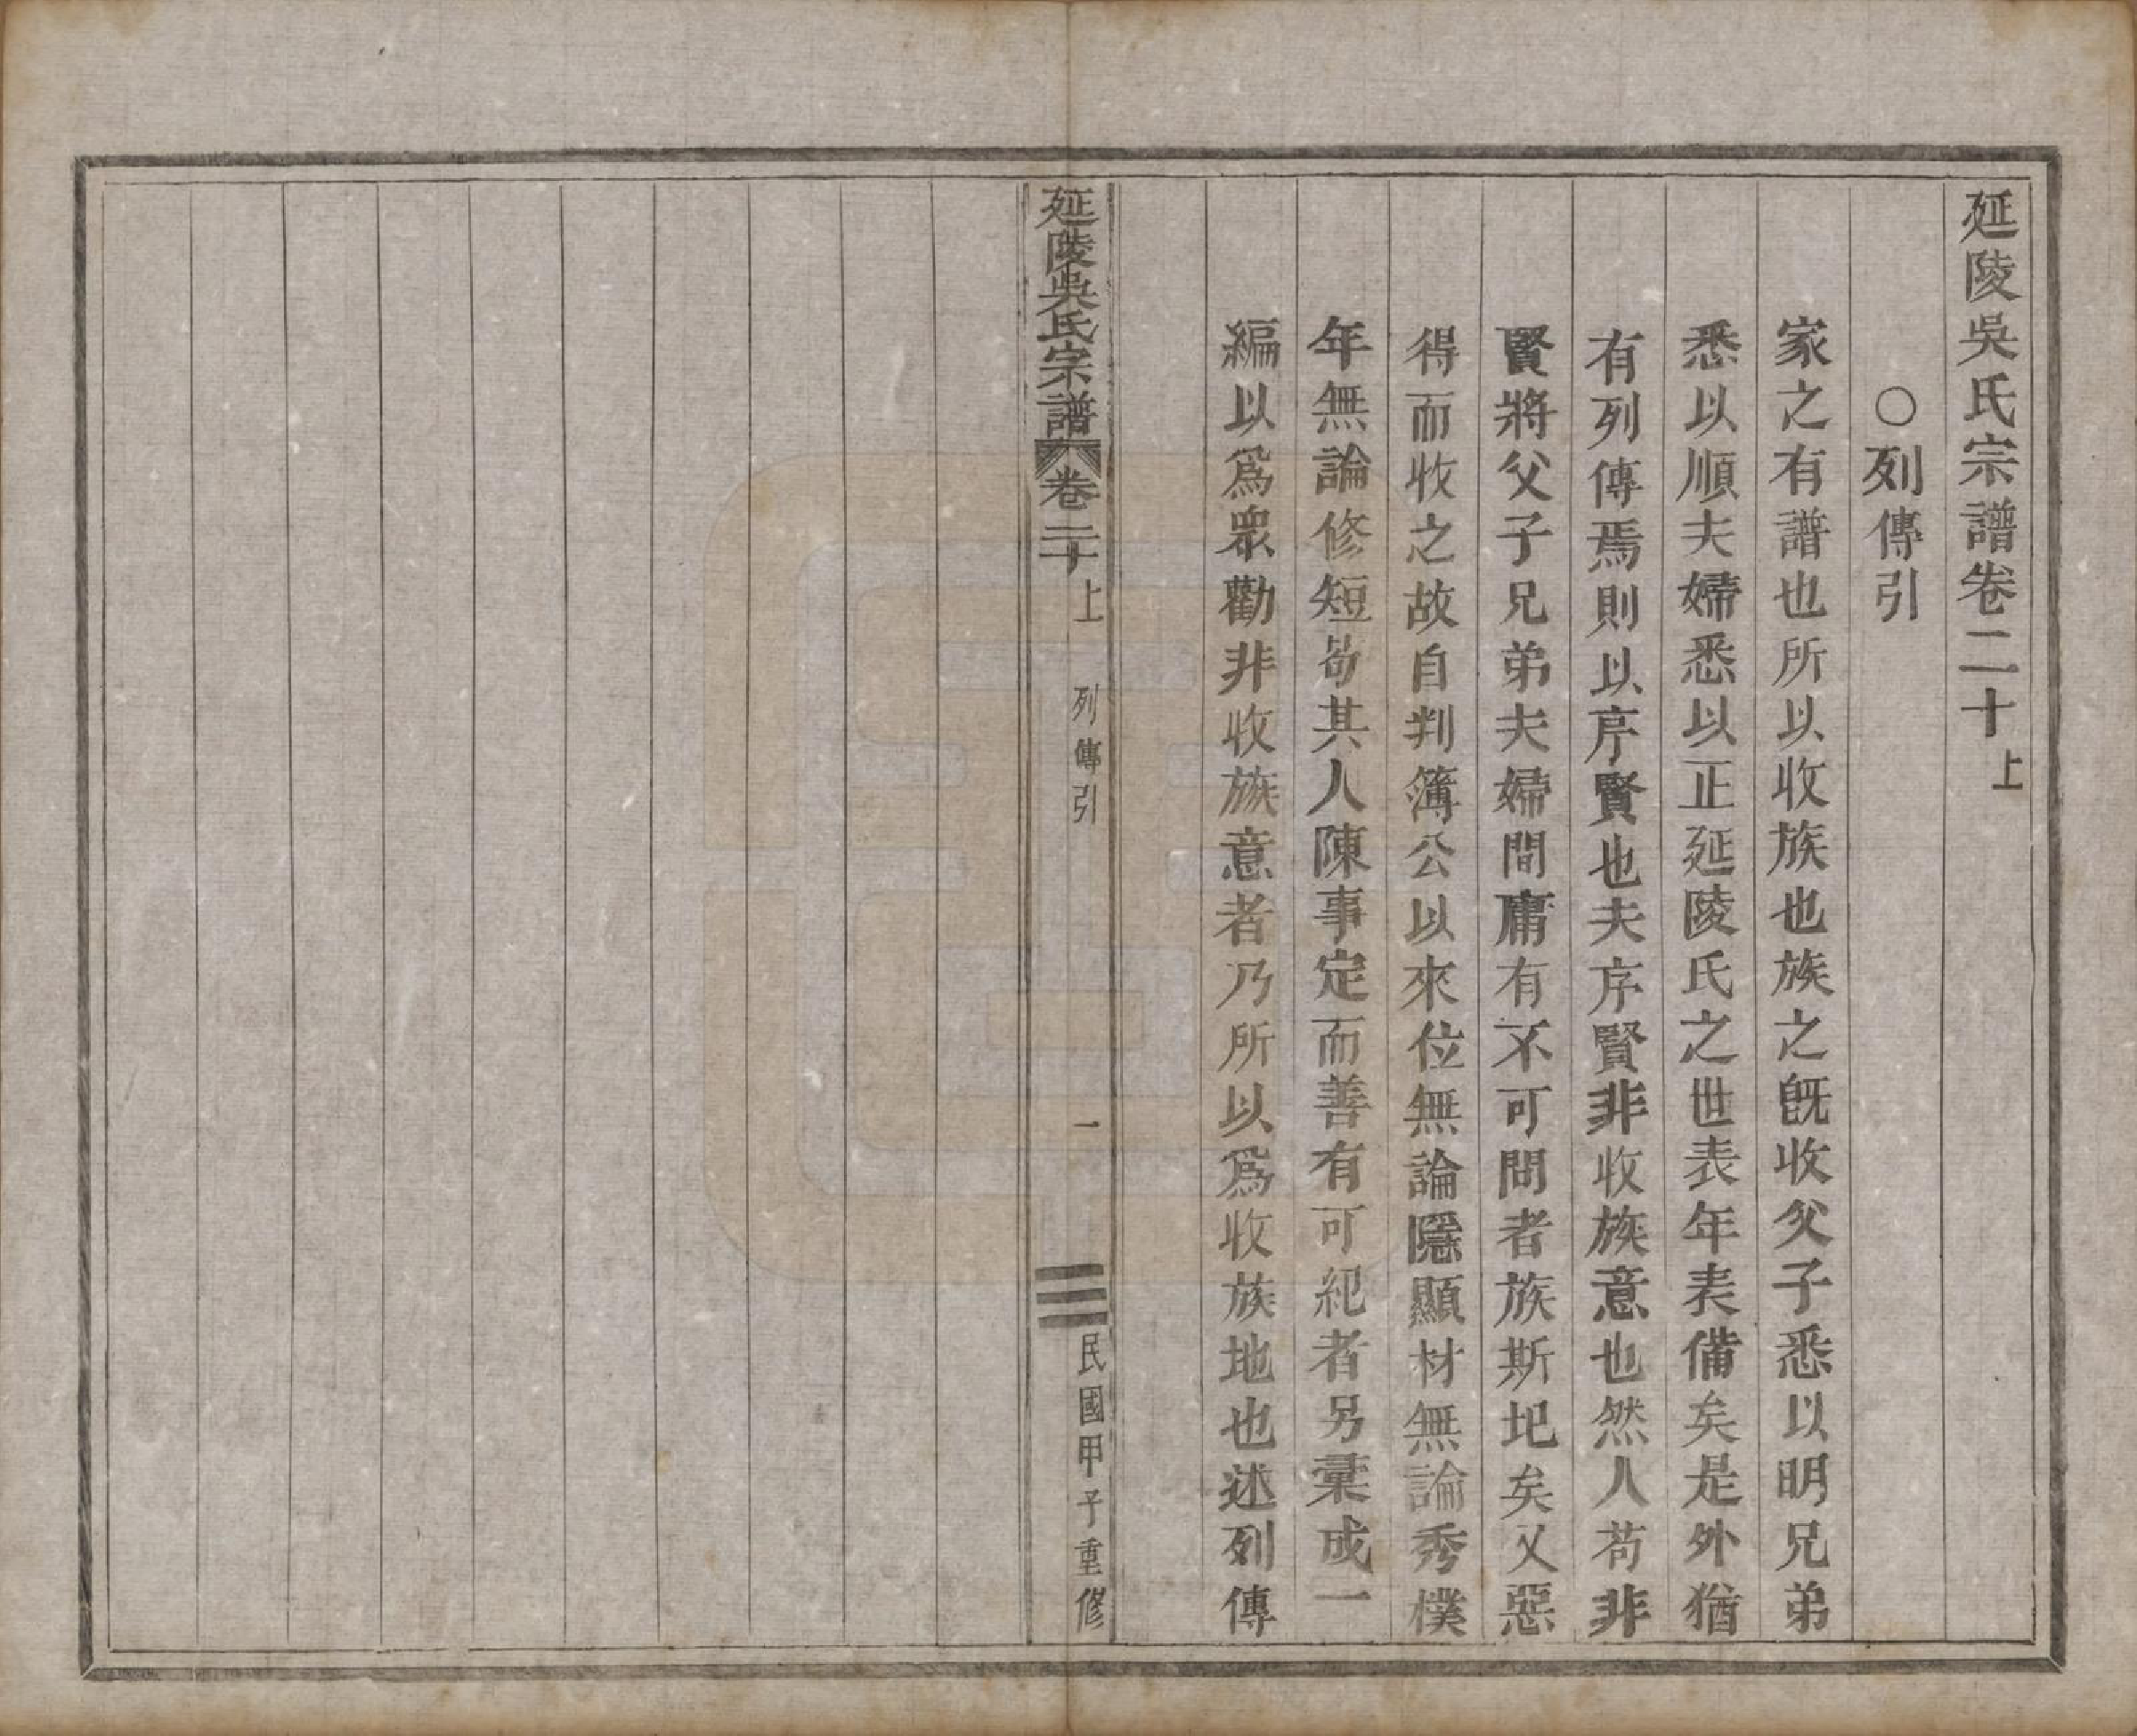 延陵吳氏宗譜卷二十上
○列傳引
家之有譜也所以收族也族之旣收父子悉以明兄弟
悉以順夫婦悉以正延陵氏之世表年表備矣是外猶
有列傳焉則以序賢也夫序賢非收族意也然人苟非
賢將父子兄弟夫婦間庸有不可問者族斯圯矣又惡
得而收之故自判簿公以來位無論隱顯材無論秀樸
年無論修短苟其人陳事定而善有可紀者另彙成一
編以爲眾勸非收族意者乃所以爲收族地也述列傳
延陵吳氏宗譜 卷二十上 列傳引 一 民國甲子重修